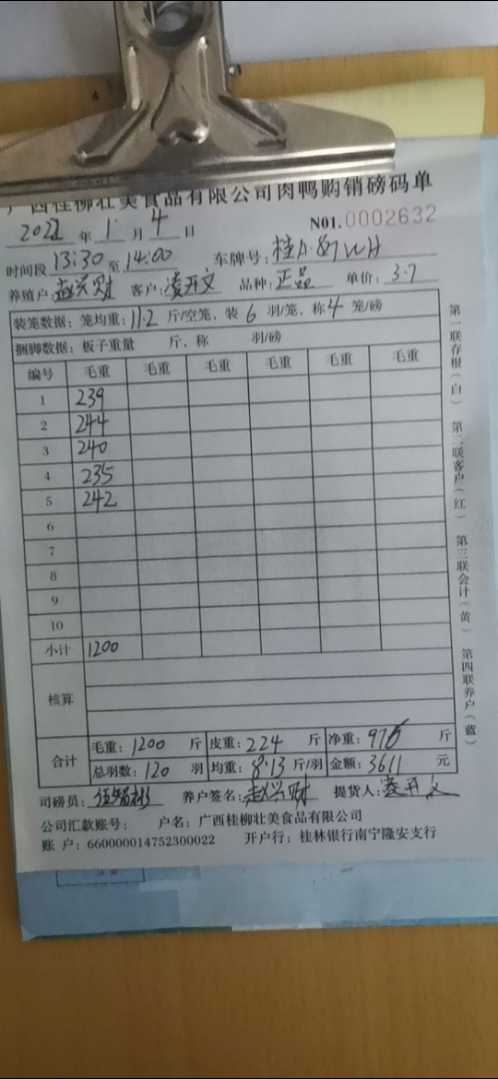 广西桂柳壮美食品有限公司肉鸭购销磅码单
2022 年 1 月 4 日 N01.0002632
时间段 13:30 至 14:00 车牌号:
养殖户: 赵兴财 客户: 凌开文 品种: 正品 单价: 3.7
装笼数据: 笼均重: 11.2 斤/空笼、装 6 羽/笼、称 4 笼/磅
捆脚数据: 板子重量 斤、称 羽/磅
编号 毛重 毛重 毛重 毛重 毛重 毛重
1 239
2 244
3 240
4 235
5 242
6
7
8
9
10
小计 1200
核算
合计 毛重: 1200 斤 皮重: 224 斤 净重: 976 斤
总羽数: 120 羽 均重: 8.13 斤/羽 金额: 3611 元
司磅员: 养户签名: 赵兴财 提货人: 凌开文
公司汇款账号: 户名: 广西桂柳壮美食品有限公司
账 户: 660000014752300022 开户行: 桂林银行南宁隆安支行
第一联存根(白) 第二联客户(红) 第三联会计(黄) 第四联养户(蓝)